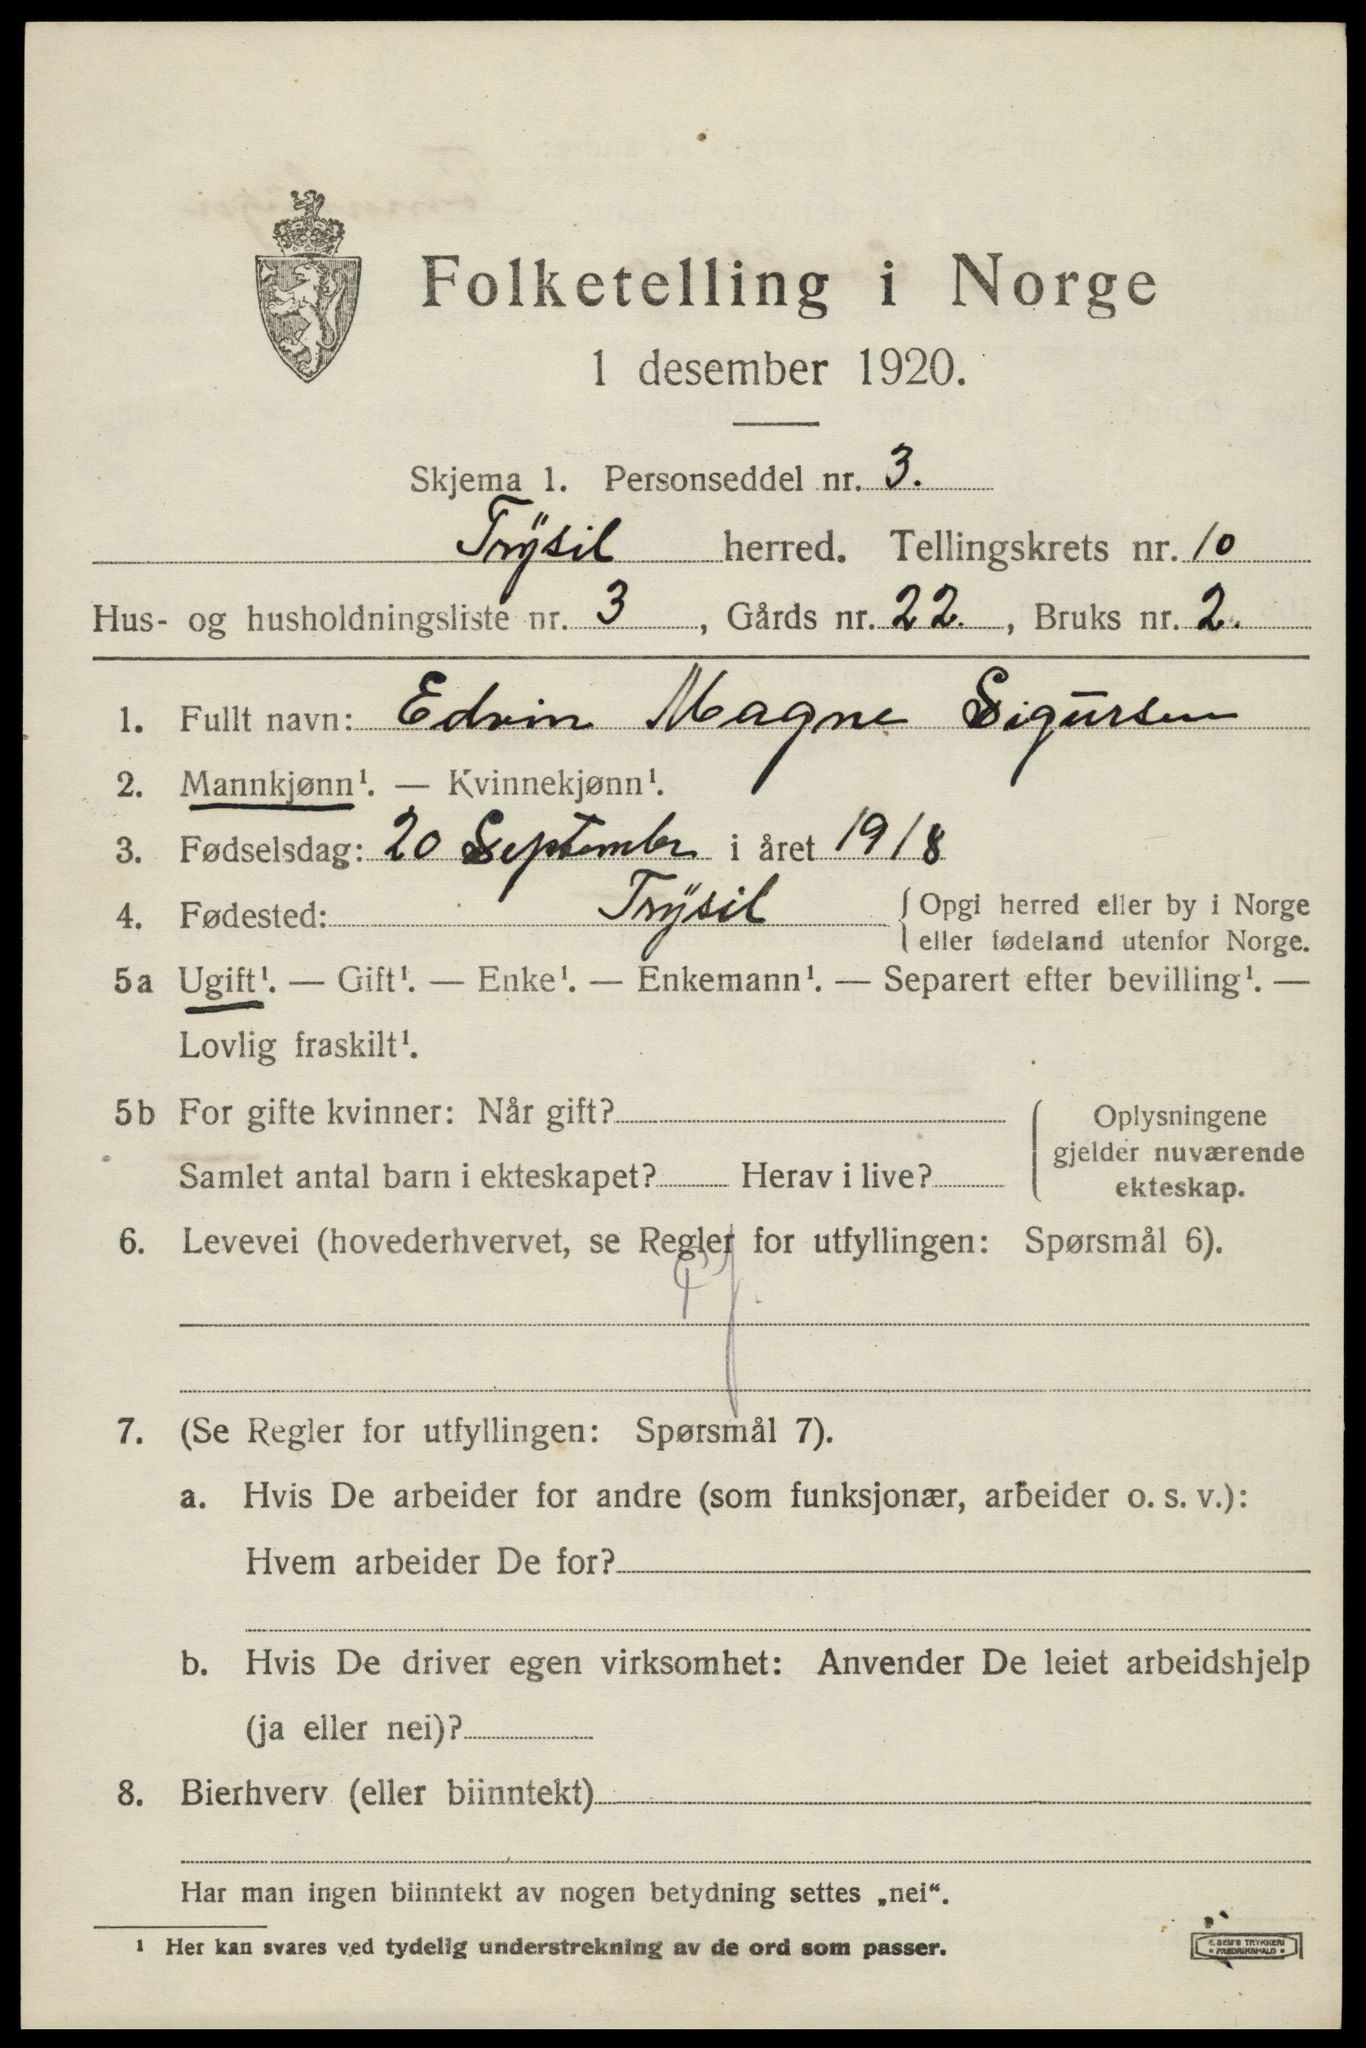 Folketelling i Norge
1 desember 1920.
Skjema 1. Personseddel nr. 3.
Trysil herred. Tellingskrets nr. 10
Hus- og husholdningsliste nr. 3, Gårds nr. 22., Bruks nr. 2.
1. Fullt navn: Edvin Magne Sigursen
2. Mannkjønn¹. — Kvinnekjønn¹.
3. Fødselsdag: 20 September i året 1918
4. Fødested: Trysil { Opgi herred eller by i Norge
eller fødeland utenfor Norge.
5a Ugift¹. — Gift¹. — Enke¹. — Enkemann¹. — Separert efter bevilling¹. —
Lovlig fraskilt¹.
5b For gifte kvinner: Når gift?
Samlet antal barn i ekteskapet? Herav i live?
Oplysningene
gjelder nuværende
ekteskap.
6. Levevei (hovederhvervet, se Regler for utfyllingen: Spørsmål 6).
7. (Se Regler for utfyllingen: Spørsmål 7).
a. Hvis De arbeider for andre (som funksjonær, arbeider o. s. v.):
Hvem arbeider De for?
b. Hvis De driver egen virksomhet: Anvender De leiet arbeidshjelp
(ja eller nei)?
8. Bierhverv (eller biinntekt)
Har man ingen biinntekt av nogen betydning settes „nei“.
¹ Her kan svares ved tydelig understrekning av de ord som passer.
SEM'S TRYKKERI
FREDRIKSHALD